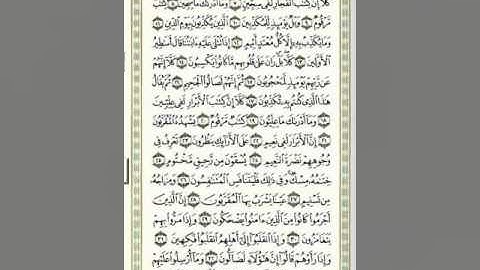 كَلَّا إِنَّ كِتَٰبَ ٱلْفُجَّارِ لَفِى سِجِّينٍ ٧ وَمَآ أَدْرَىٰكَ مَا سِجِّينٌ ٨ كِتَٰبٌ
مَّرْقُومٌ ٩ وَيْلٌ يَوْمَئِذٍ لِّلْمُكَذِّبِينَ ١٠ ٱلَّذِينَ يُكَذِّبُونَ بِيَوْمِ ٱلدِّينِ ١١
وَمَا يُكَذِّبُ بِهِۦٓ إِلَّا كُلُّ مُعْتَدٍ أَثِيمٍ ١٢ إِذَا تُتْلَىٰ عَلَيْهِ ءَايَٰتُنَا قَالَ أَسَٰطِيرُ
ٱلْأَوَّلِينَ ١٣ كَلَّا بَلْ رَانَ عَلَىٰ قُلُوبِهِم مَّا كَانُوا۟ يَكْسِبُونَ ١٤ كَلَّآ إِنَّهُمْ
عَن رَّبِّهِمْ يَوْمَئِذٍ لَّمَحْجُوبُونَ ١٥ ثُمَّ إِنَّهُمْ لَصَالُوا۟ ٱلْجَحِيمِ ١٦ ثُمَّ يُقَالُ
هَٰذَا ٱلَّذِى كُنتُم بِهِۦ تُكَذِّبُونَ ١٧ كَلَّآ إِنَّ كِتَٰبَ ٱلْأَبْرَارِ لَفِى عِلِّيِّينَ
١٨ وَمَآ أَدْرَىٰكَ مَا عِلِّيُّونَ ١٩ كِتَٰبٌ مَّرْقُومٌ ٢٠ يَشْهَدُهُ ٱلْمُقَرَّبُونَ
٢١ إِنَّ ٱلْأَبْرَارَ لَفِى نَعِيمٍ ٢٢ عَلَى ٱلْأَرَآئِكِ يَنظُرُونَ ٢٣ تَعْرِفُ فِى
وُجُوهِهِمْ نَضْرَةَ ٱلنَّعِيمِ ٢٤ يُسْقَوْنَ مِن رَّحِيقٍ مَّخْتُومٍ ٢٥
خِتَٰمُهُۥ مِسْكٌ وَفِى ذَٰلِكَ فَلْيَتَنَافَسِ ٱلْمُتَنَٰفِسُونَ ٢٦ وَمِزَاجُهُۥ
مِن تَسْنِيمٍ ٢٧ عَيْنًا يَشْرَبُ بِهَا ٱلْمُقَرَّبُونَ ٢٨ إِنَّ ٱلَّذِينَ
أَجْرَمُوا۟ كَانُوا۟ مِنَ ٱلَّذِينَ ءَامَنُوا۟ يَضْحَكُونَ ٢٩ وَإِذَا مَرُّوا۟ بِهِمْ
يَتَغَامَزُونَ ٣٠ وَإِذَا ٱنقَلَبُوٓا۟ إِلَىٰٓ أَهْلِهِمُ ٱنقَلَبُوا۟ فَكِهِينَ ٣١
وَإِذَا رَأَوْهُمْ قَالُوٓا۟ إِنَّ هَٰٓؤُلَآءِ لَضَآلُّونَ ٣٢ وَمَآ أُرْسِلُوا۟ عَلَيْهِمْ